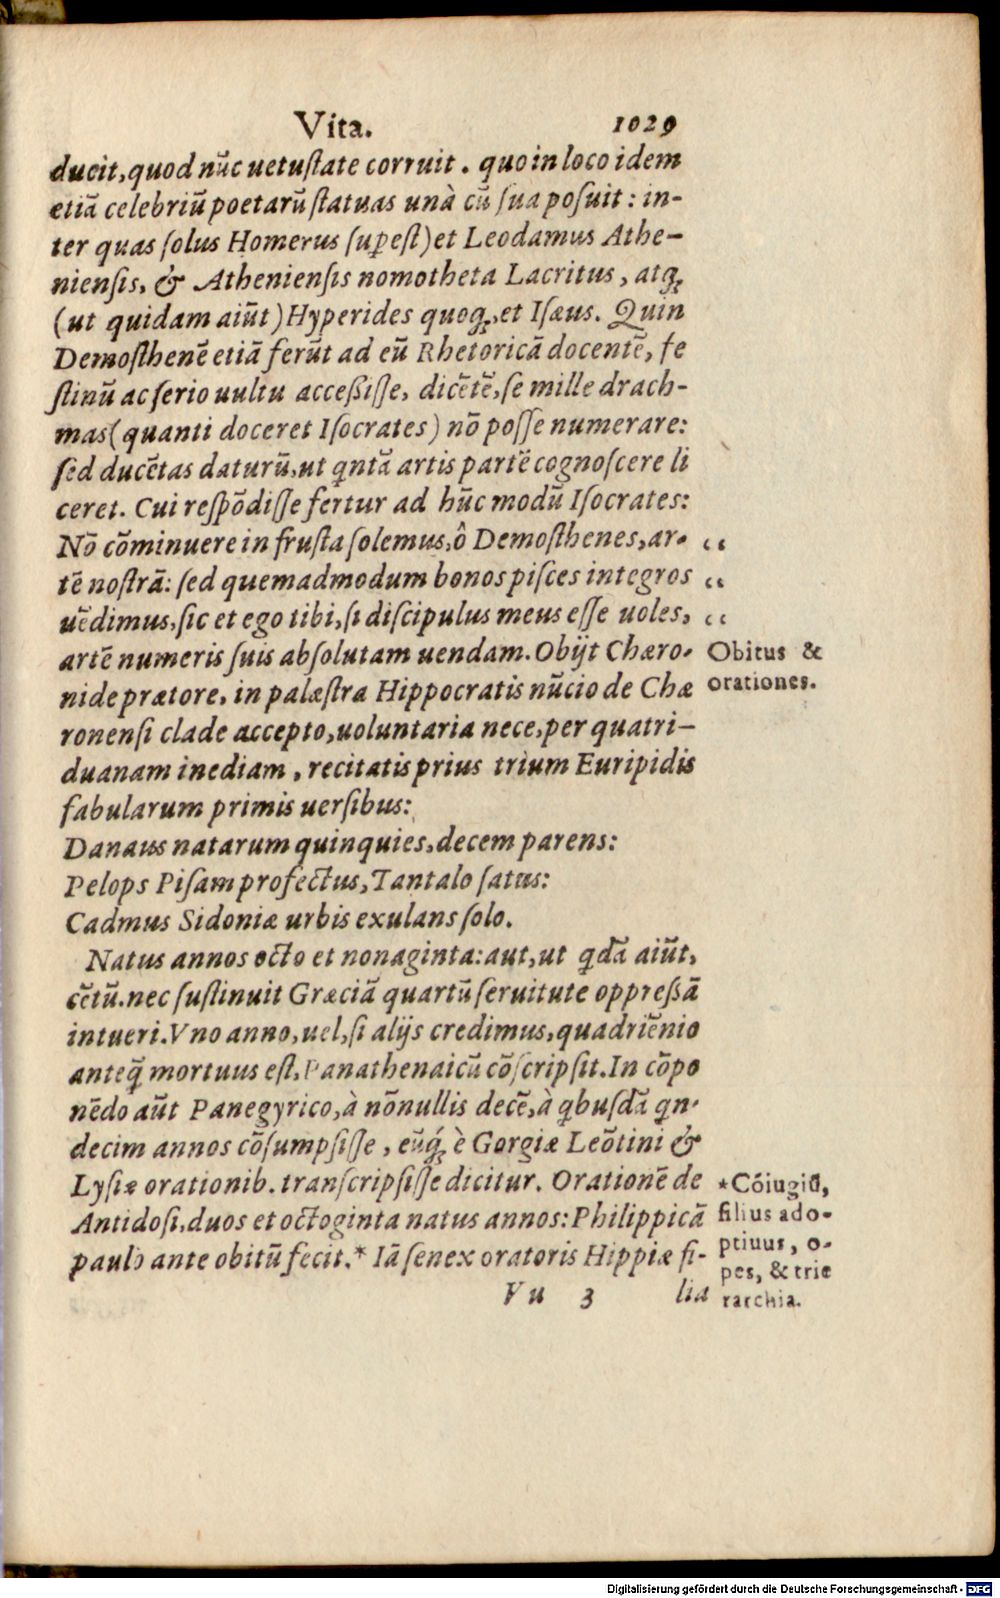 Vita. 1029
ducit, quod nūc uetuſtate corruit. quo in loco idem
etiā celebriū poetarū ſtatuas unà cū ſua poſuit: in-
ter quas ſolus Homerus ſupeſt) et Leodamus Athe-
nienſis, & Athenienſis nomotheta Lacritus, atq;
(ut quidam aiūt) Hyperides quoq;, et Iſæus. Quin
Demoſthenē etiā ferūt ad eū Rhetoricā docentē, fe
ſtinū ac ſerio uultu acceßiſſe, dicētē, ſe mille drach-
mas (quanti doceret Iſocrates) nō poſſe numerare:
ſed ducētas daturū, ut qntā artis partē cognoſcere li
ceret. Cui reſpōdiſſe fertur ad hūc modū Iſocrates:
Nō cōminuere in fruſta ſolemus, ô Demoſthenes, ar-
tē noſtrā: ſed quemadmodum bonos piſces integros
uēdimus, ſic et ego tibi, ſi diſcipulus meus eſſe uoles,
artē numeris ſuis abſolutam uendam. Obijt Chæro-
nide prætore, in palæſtra Hippocratis nūcio de Chæ
ronenſi clade accepto, uoluntaria nece, per quatri-
duanam inediam, recitatis prius trium Euripidis
fabularum primis uerſibus:
Danaus natarum quinquies, decem parens:
Pelops Piſam profectus, Tantalo ſatus:
Cadmus Sidoniæ urbis exulans ſolo.
Natus annos octo et nonaginta: aut, ut qdā aiūt,
cētū. nec ſuſtinuit Græciā quartū ſeruitute oppreßā
intueri. Vno anno, uel, ſi alijs credimus, quadriēnio
anteq̄ mortuus eſt, Panathenaicū cōſcripſit. In cōpo
nēdo aūt Panegyrico, à nōnullis decē, à qbuſdā qn-
decim annos cōſumpſiſſe, eūq́; è Gorgiæ Leōtini &
Lyſiæ orationib. tranſcripſiſſe dicitur. Orationē de
Antidoſi, duos et octoginta natus annos: Philippicā
paulo ante obitū fecit.* Iā ſenex oratoris Hippiæ fi-
Vu 3 lia
“
“
“
Obitus &
orationes.
*Cōiugiū,
filius ado-
ptiuus, o-
pes, & trie
rarchia.
Digitalisierung gefördert durch die Deutsche Forschungsgemeinschaft - DFG